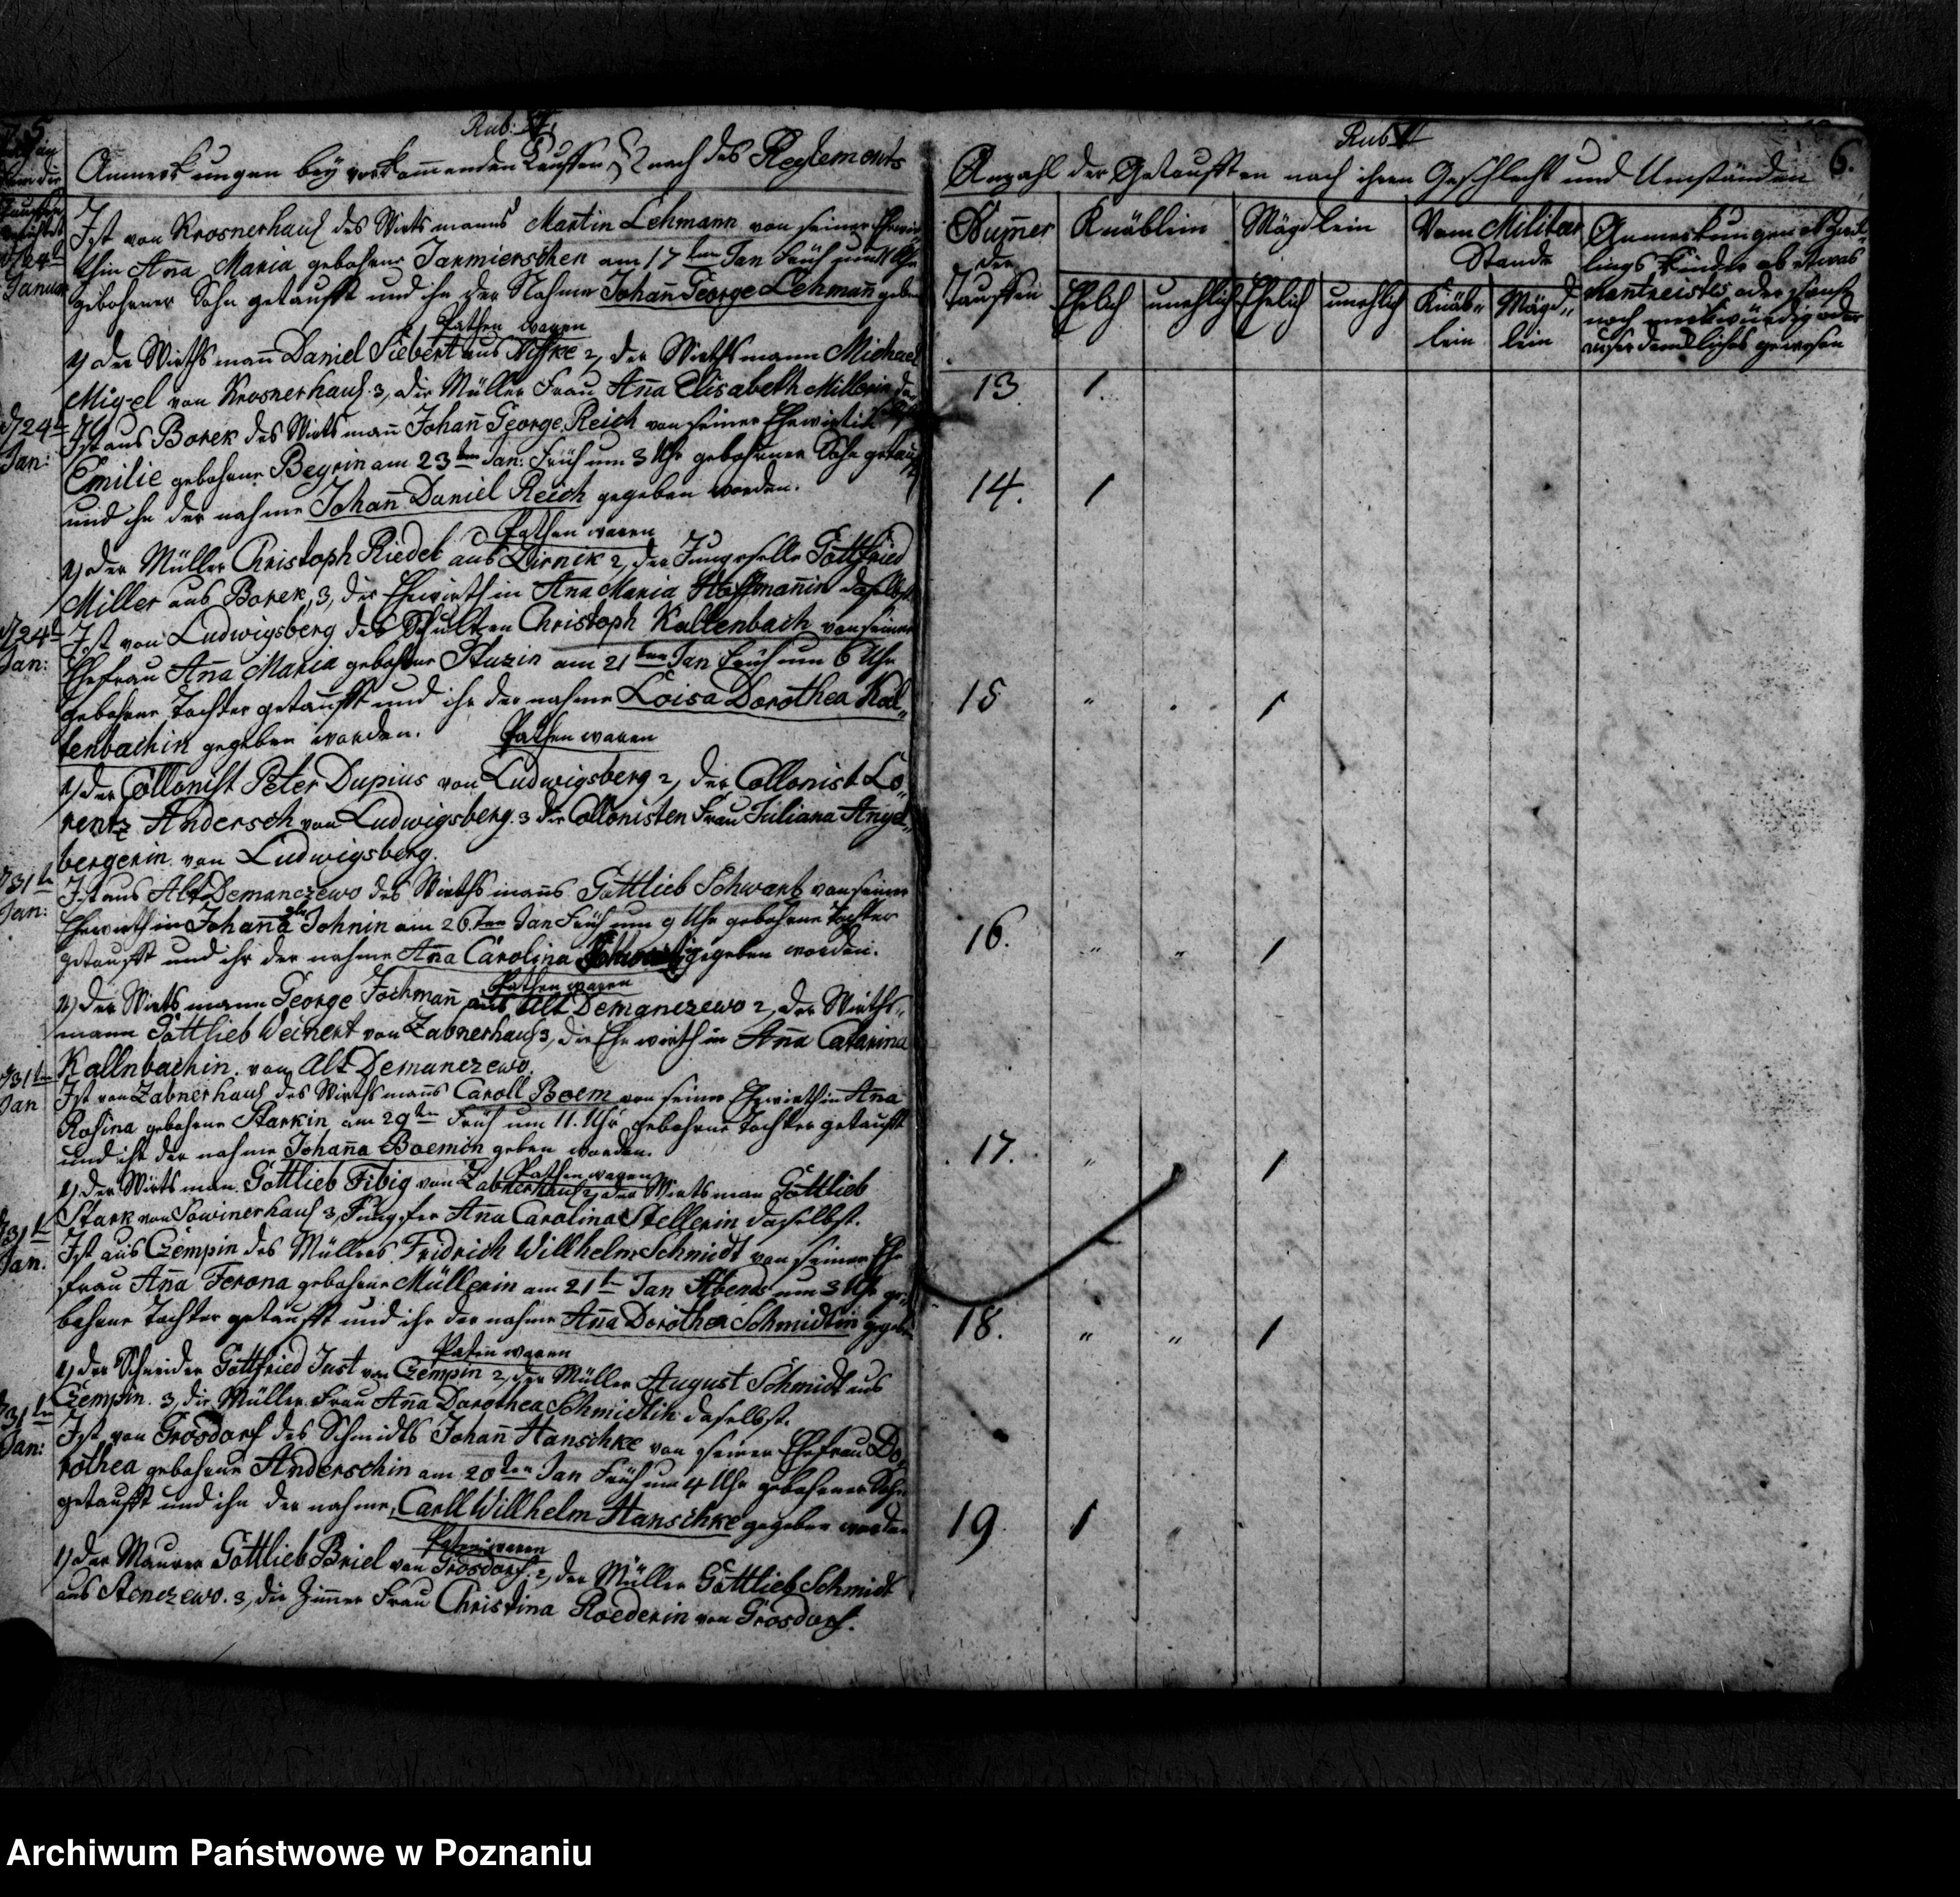 Rub: V.
Anmerkungen bey vorkommenden Tauffen § 2 nach des Reglements
d 24t
Januar
Ist von Krosnerhaul des Wirts manns Martin Lehmann von seiner Ehewir-
thin Anna Maria gebohrne Janmierschen am 17ten Jan Früh um Uhr
gebohrner Sohn getaufft und ihn der Nahme Johann George Lehmann geben
Pathen waren
1, der Wirthsmann Daniel Siebert aus 2, der Wirthsmann Michael
Migel von Krosnerhaul. 3, die Müller Frau Anna Elisabeth Millerin da-
d 24t
Jan:
Ist aus Borek des Wirtsmann Johann George Reich von seiner Ehewirtin
Emilie gebohrne Beyrin am 23ten Jan: Früh um 3 Uhr gebohrner Sohn getauf
und ihn der nahme Johann Daniel Reich gegeben worden.
Pathen waren
1, der Müller Christoph Riedel aus Pirnik 2, der Junggeselle Gottfried
Miller aus Borek, 3, die Ehewirthin Anna Maria Hoffmannin daselbst
d 24t
Jan:
Ist von Ludwigsberg des Schultzen Christoph Kallenbach von seiner
Ehefrau Anna Maria gebohrne Sturzin am 21ten Jan Früh um 6 Uhr
gebohrne Tochter getaufft und ihr der nahme Loisa Dorothea Kal-
lenbachin gegeben worden.
Pathen waren
1, der Collonist Peter Dupius von Ludwigsberg 2, der Collonist Lo-
rentz Andersch von Ludwigsberg. 3 die Collonisten Frau Juliana Angel-
bergerin von Ludwigsberg.
d 31t
Jan:
Ist aus Alt Demanczewo des Wirthsmanns Gottlieb Schwartz von seiner
Ehewirthin Johanna gb Johnin am 26ten Jan Früh um 9 Uhr gebohrne Tochter
getaufft und ihr der nahme Anna Carolina Schwartz gegeben worden.
Pathen waren
1, der Wirtsmann George Jochmann aus Alt Demanczewo 2, der Wirths-
mann Gottlieb Weinert von Zabnerhaul 3, die Ehewirthin Anna Catarina
Kallnbachin. von Alt Demanczewo.
d 31t
Jan
Ist von Zabnerhaul des Wirthsmanns Caroll Boem von seiner Ehewirthin Anna
Rosina gebohrne Starkin am 29ten Früh um 11. Uhr gebohrne Tochter getaufft
und ihr der nahme Johanna Boemin geben worden.
Pathen waren
1, der Wirtsman. Gottlieb Fibig von Zabnerhaul 2, der Wirtsman Gottlieb
Stark von Sowinerhaul 3, Jungfer Anna Carolina Stellerin daselbst.
d 31t
Jan.
Ist aus Czempin des Müllers Fridrich Willhelm Schmidt von seiner Ehe
frau Anna Ferona gebohrne Müllerin am 21t Jan Abends um 3 Uhr ge-
bohrne Tochter getaufft und ihr der nahme Anna Dorothea Schmidtin gegeben
Paten waren
1, der Schneider Gottfried Just von Czempin 2, der Müller August Schmidt aus
Czempin. 3, die Müller Frau Anna Dorothea Schmidtin daselbst.
d 31t
Jan:
Ist von Grosdorf des Schmidts Johann Hanschke von seiner Ehefrau Do-
rothea gebohrne Anderschin am 20ten Jan Früh um 4 Uhr gebohrner Sohn
getaufft und ihn der nahme Carll Willhelm Hanschke gegeben worden
Paten waren
1, der Maurer Gottlieb Briel von Grosdorf. 2, der Müller Gottlieb Schmidt
aus Stenczewo. 3, die Zimmer Frau Christina Roederin von Grosdorf.
Rub VI
6.
Anzahl der Getaufften nach ihren Geschlecht und Umständen
Numer der Tauffen
Knäblein
Mägdlein
Vom Militair Stande
Anmerkungen ob Zwil-
lings Kinder ob etwas
oder sonst
noch merkwürdig oder
gewesen
Ehelich
unehlich
Ehelich
unehlich
Knäb-
lein
Mägd-
lein
13 1.
14. 1
15 " . 1
16. " " 1
17. " 1
18. " " 1
19. 1 "
Archiwum Państwowe w Poznaniu